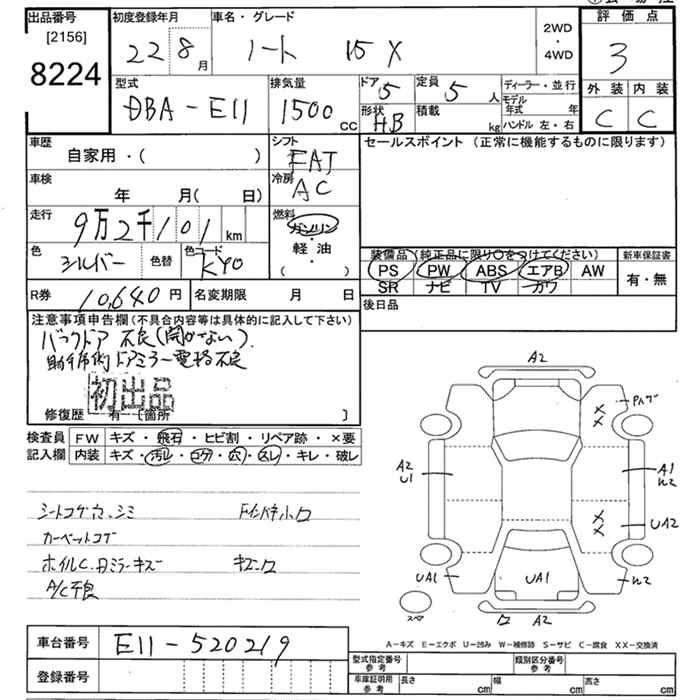 出品番号
[2156]
8224
初度登録年月
22 8月
車名・グレード
ノート 15 X
2WD
・
4WD
評価点
3
外装 内装
C C
型式
DBA-E11
排気量
1500 CC
ドア 5
形状 HB
定員 5 人
積載 kg
ディーラー・並行
モデル年式 年
ハンドル 左・右
車歴
自家用・( )
シフト
FAT
車検
年 月( 日)
冷房
AC
走行
9万2千101 km
燃料
ガソリン
・
軽油
( )
色
シルバー
色替
色コード
KY0
R券 10,640 円
名変期限 月 日
セールスポイント (正常に機能するものに限ります)
装備品(純正品に限り○をつけてください)
PS PW ABS エアB AW
SR ナビ TV カワ
新車保証書
有・無
後日品
注意事項申告欄(不具合内容等は具体的に記入して下さい)
バックドア 不良(開かない)
ドアミラー電格不良
初出品
修復歴 有-[箇所 ]
検査員 FW キズ・飛石・ヒビ割・リペア跡・×要
記入欄 内装 キズ・汚レ・コゲ・穴・スレ・キレ・破レ
シートコゲ穴、シミ
カーペットコゲ
ホイルC、Rミラーキズ
A/C不良
A2
A2
U1
A1
W2
UA2
UA1
UA1
W2
A2
スペア
A-キズ E-エクボ U-凹み W-補修跡 S-サビ C-腐食 XX-交換済
車台番号 E11-520219
登録番号
型式指定番号
参考
類別区分番号
参考
車庫証明用
参考
長さ cm 幅 cm 高さ cm